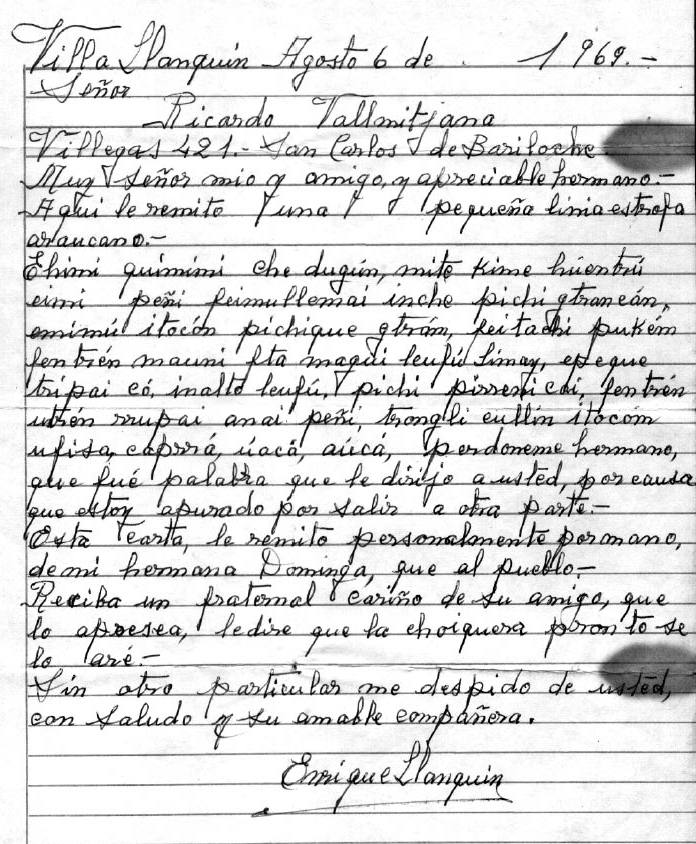 Villa Llanquin Agosto 6 de . 1969.-
Señor
Ricardo Vallmitjana
Villegas 421.- San Carlos de Bariloche
Muy señor mio y amigo, y apreciable hermano.-
Aqui le remito una pequeña linia estrofa
araucano.-
Ehimi quimimi che dugún, mite Kime húentrú
eimi peñi feimullemai inche pichi gtraneán,
emimú itocón pichique gtrám, feitachi pukém
fentrén mauni fta magui leufú Limay, epeque
tripai có, inalto leufú, pichi pirrenicai, fentrén
utrén rrupai anai peñi, trongli cullin itocom
ufisa, caprrá, úacá, aúcá, perdoneme hermano,
que fué palabra que le dirijo a usted, por causa
que estoy apurado por salir a otra parte.-
Esta carta, le remito personalmente por mano,
de mi hermana Dominga, que al pueblo-
Reciba un fraternal cariño de su amigo, que
lo apresea, ledire que la choiquera pronto se
lo aré.-
Sin otro particular me despido de usted,
con saludo y su amable compañera.
Enrique Llanquin